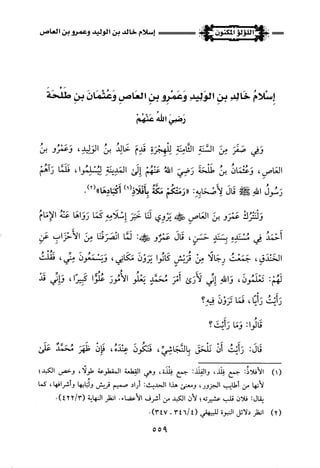 اللؤلؤ المكنون
إسلام خالد بن الوليد وعمرو بن العاص
إِسْلَامُ خَالِدِ بنِ الوَلِيدِ وَعَمْرِو بنِ العَاصِ وَعُثْمَانَ بنِ طَلْحَةَ
رَضِيَ اللهُ عَنْهُمْ
وَفِي صَفَرَ مِنَ السَّنَةِ الثَّامِنَةِ لِلْهِجْرَةِ قَدِمَ خَالِدُ بنُ الوَلِيدِ، وَعَمْرُو بنُ
العَاصِ، وَعُثْمَانُ بنُ طَلْحَةَ رَضِيَ اللهُ عَنْهُمْ إِلَى المَدِينَةِ لِيُسْلِمُوا، فَلَمَّا رَآهُمْ
رَسُولُ اللهِ ﷺ قَالَ لِأَصْحَابِهِ: «رَمَتْكُمْ مَكَّةُ بِأَفْلَاذِ(١) أَكْبَادِهَا»(٢).
وَلْنَتْرُكْ عَمْرَو بنَ العَاصِ ﷺ يَرْوِي لَنَا خَبَرَ إِسْلَامِهِ كَمَا رَوَاهَا عَنْهُ الإِمَامُ
أَحْمَدُ فِي مُسْنَدِهِ بِسَنَدٍ حَسَنٍ، قَالَ عَمْرٌو ﷺ: لَمَّا انْصَرَفْنَا مِنَ الأَحْزَابِ عَنِ
الخَنْدَقِ، جَمَعْتُ رِجَالًا مِنْ قُرَيْشٍ كَانُوا يَرَوْنَ مَكَانِي، وَيَسْمَعُونَ مِنِّي، فَقُلْتُ
لَهُمْ: تَعْلَمُونَ، وَاللهِ إِنِّي لَأَرَى أَمْرَ مُحَمَّدٍ يَعْلُو الأُمُورَ عُلُوًّا كَبِيرًا، وَإِنِّي قَدْ
رَأَيْتُ رَأْيًا، فَمَا تَرَوْنَ فِيهِ؟
قَالُوا: وَمَا رَأَيْتَ؟
قَالَ: رَأَيْتُ أَنْ نَلْحَقَ بِالنَّجَاشِيِّ، فَنَكُونَ عِنْدَهُ، فَإِنْ ظَهَرَ مُحَمَّدٌ عَلَى
(١) الأفلاذ: جمع فِلَذ، والفِلَذ: جمع فِلْذَة، وهي القطعة المقطوعة طولًا، وخص الكبد؛
لأنها من أطايب الجزور، ومعنى هذا الحديث: أراد صميم قريش ولُبابها وأشرافها، كما
يقال: فلان قلب عشيرته؛ لأن الكبد من أشرف الأعضاء. انظر النهاية (٤٢٢/٣).
(٢) انظر دلائل النبوة للبيهقي (٣٤٦/٤ - ٣٤٧).
٥٥٩